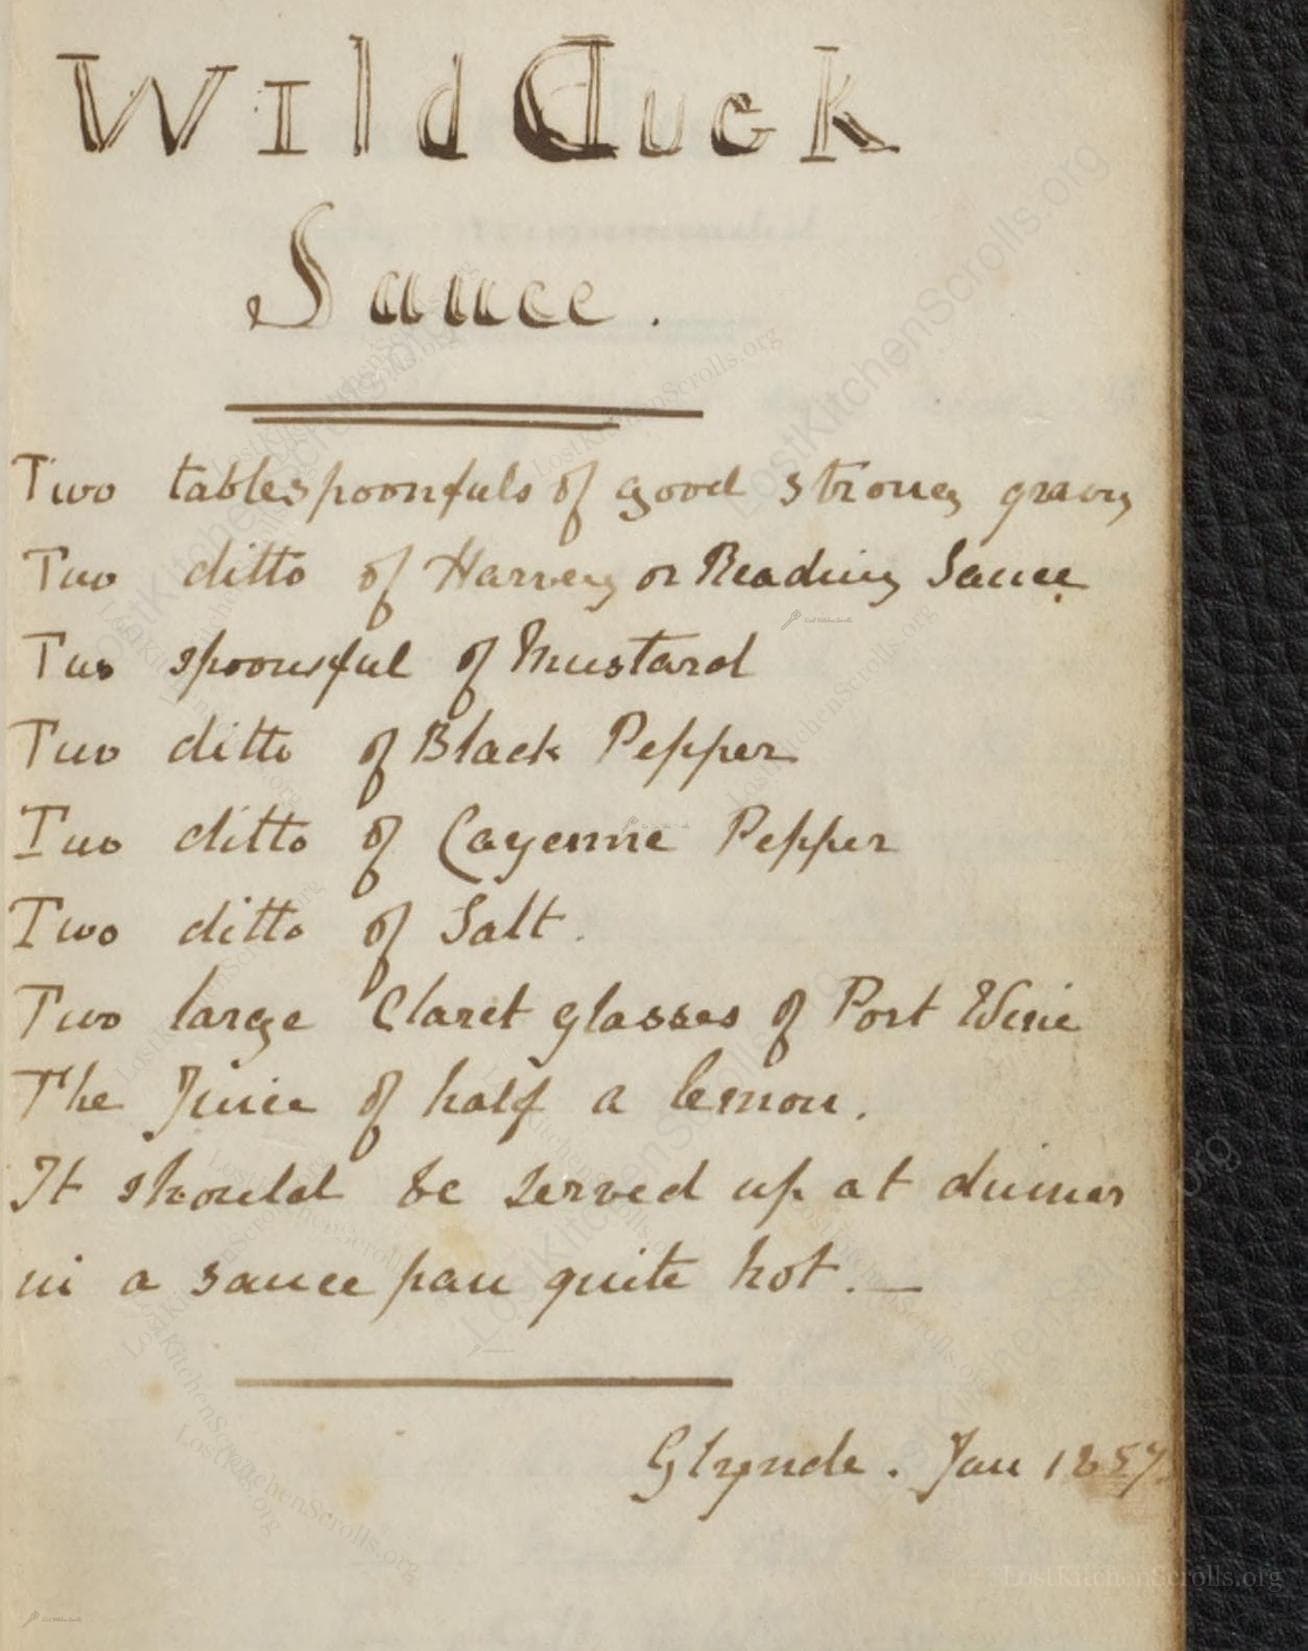 Wild Duck
Sauce.
Two tablespoonfuls of good strong gravy
Two ditto of Harvey or Reading Sauce.
Two spoonsful of Mustard
Two ditto of Black Pepper
Two ditto of Cayenne Pepper
Two ditto of Salt.
Two large Claret glasses of Port Wine
The Juice of half a lemon.
It should be served up at dinner
in a sauce pan quite hot. —
Glynde. Jan 1857.
LostKitchenScrolls.org